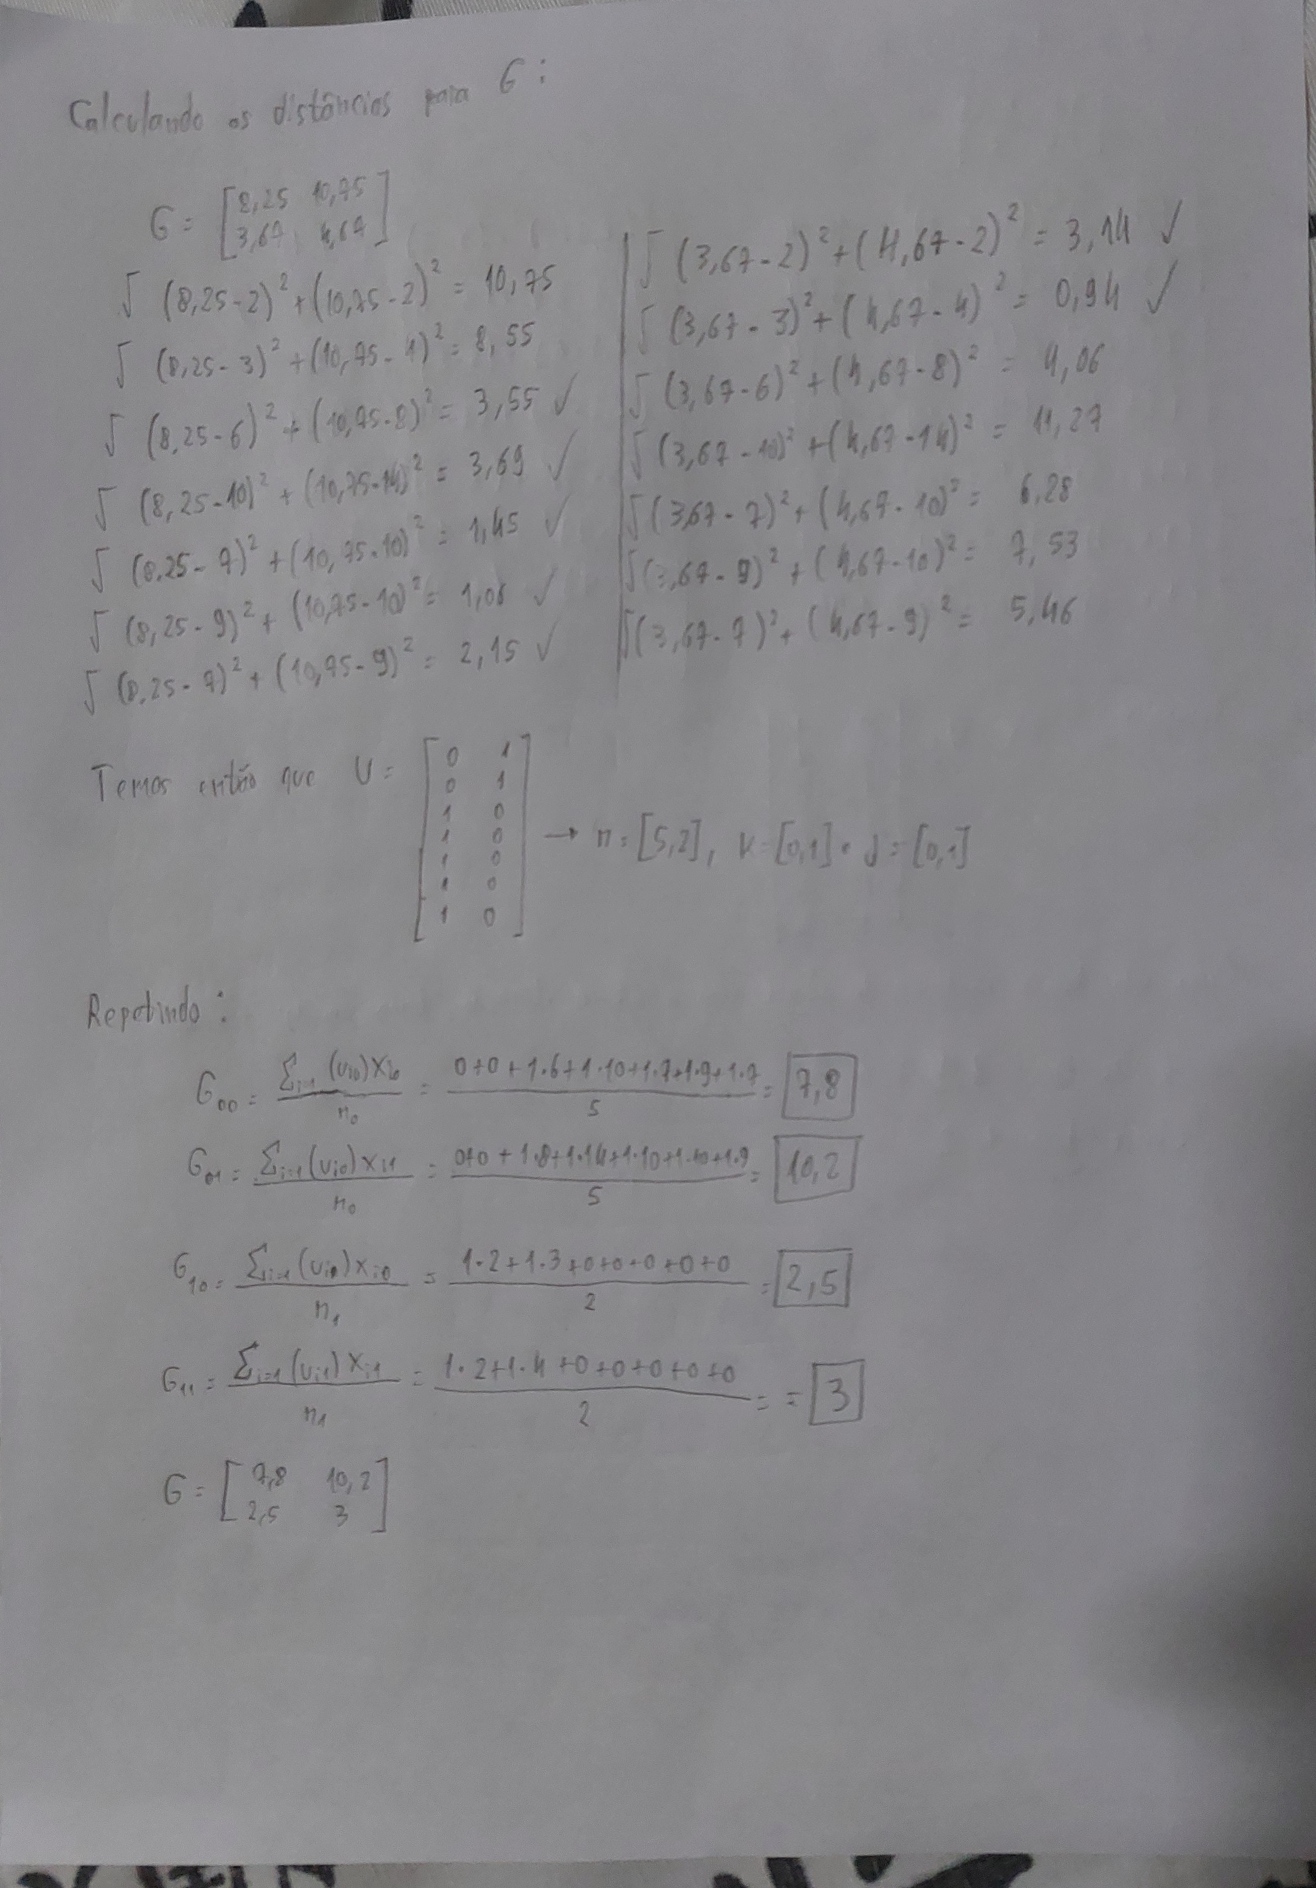 Calculando as distâncias para G:
G = [8,25 10,75
3,67 4,67]
√ (8,25-2)² + (10,75-2)² = 10,75
√ (8,25-3)² + (10,75-4)² = 8,55
√ (8,25-6)² + (10,75-8)² = 3,55 ✓
√ (8,25-10)² + (10,75-14)² = 3,69 ✓
√ (8,25-7)² + (10,75-10)² = 1,45 ✓
√ (8,25-9)² + (10,75-10)² = 1,06 ✓
√ (8,25-7)² + (10,75-9)² = 2,15 ✓
√ (3,67-2)² + (4,67-2)² = 3,14 ✓
√ (3,67-3)² + (4,67-4)² = 0,94 ✓
√ (3,67-6)² + (4,67-8)² = 4,06
√ (3,67-10)² + (4,67-14)² = 11,27
√ (3,67-7)² + (4,67-10)² = 6,28
√ (3,67-9)² + (4,67-10)² = 7,53
√ (3,67-7)² + (4,67-9)² = 5,46
Temos então que U = [0 1
0 1
1 0
1 0
1 0
1 0
1 0] → n = [5,2], K = [0,1] e J = [0,1]
Repetindo:
G₀₀ = Σᵢ₌₁(uᵢ₀)xᵢ₀ / n₀ = 0+0+1·6+1·10+1·7+1·9+1·7 / 5 = 7,8
G₀₁ = Σᵢ₌₁(uᵢ₀)xᵢ₁ / n₀ = 0+0+1·8+1·14+1·10+1·10+1·9 / 5 = 10,2
G₁₀ = Σᵢ₌₁(uᵢ₀)xᵢ₀ / n₁ = 1·2+1·3+0+0+0+0+0 / 2 = 2,5
G₁₁ = Σᵢ₌₁(uᵢ₁)xᵢ₁ / n₁ = 1·2+1·4+0+0+0+0+0 / 2 = = 3
G = [7,8 10,2
2,5 3]